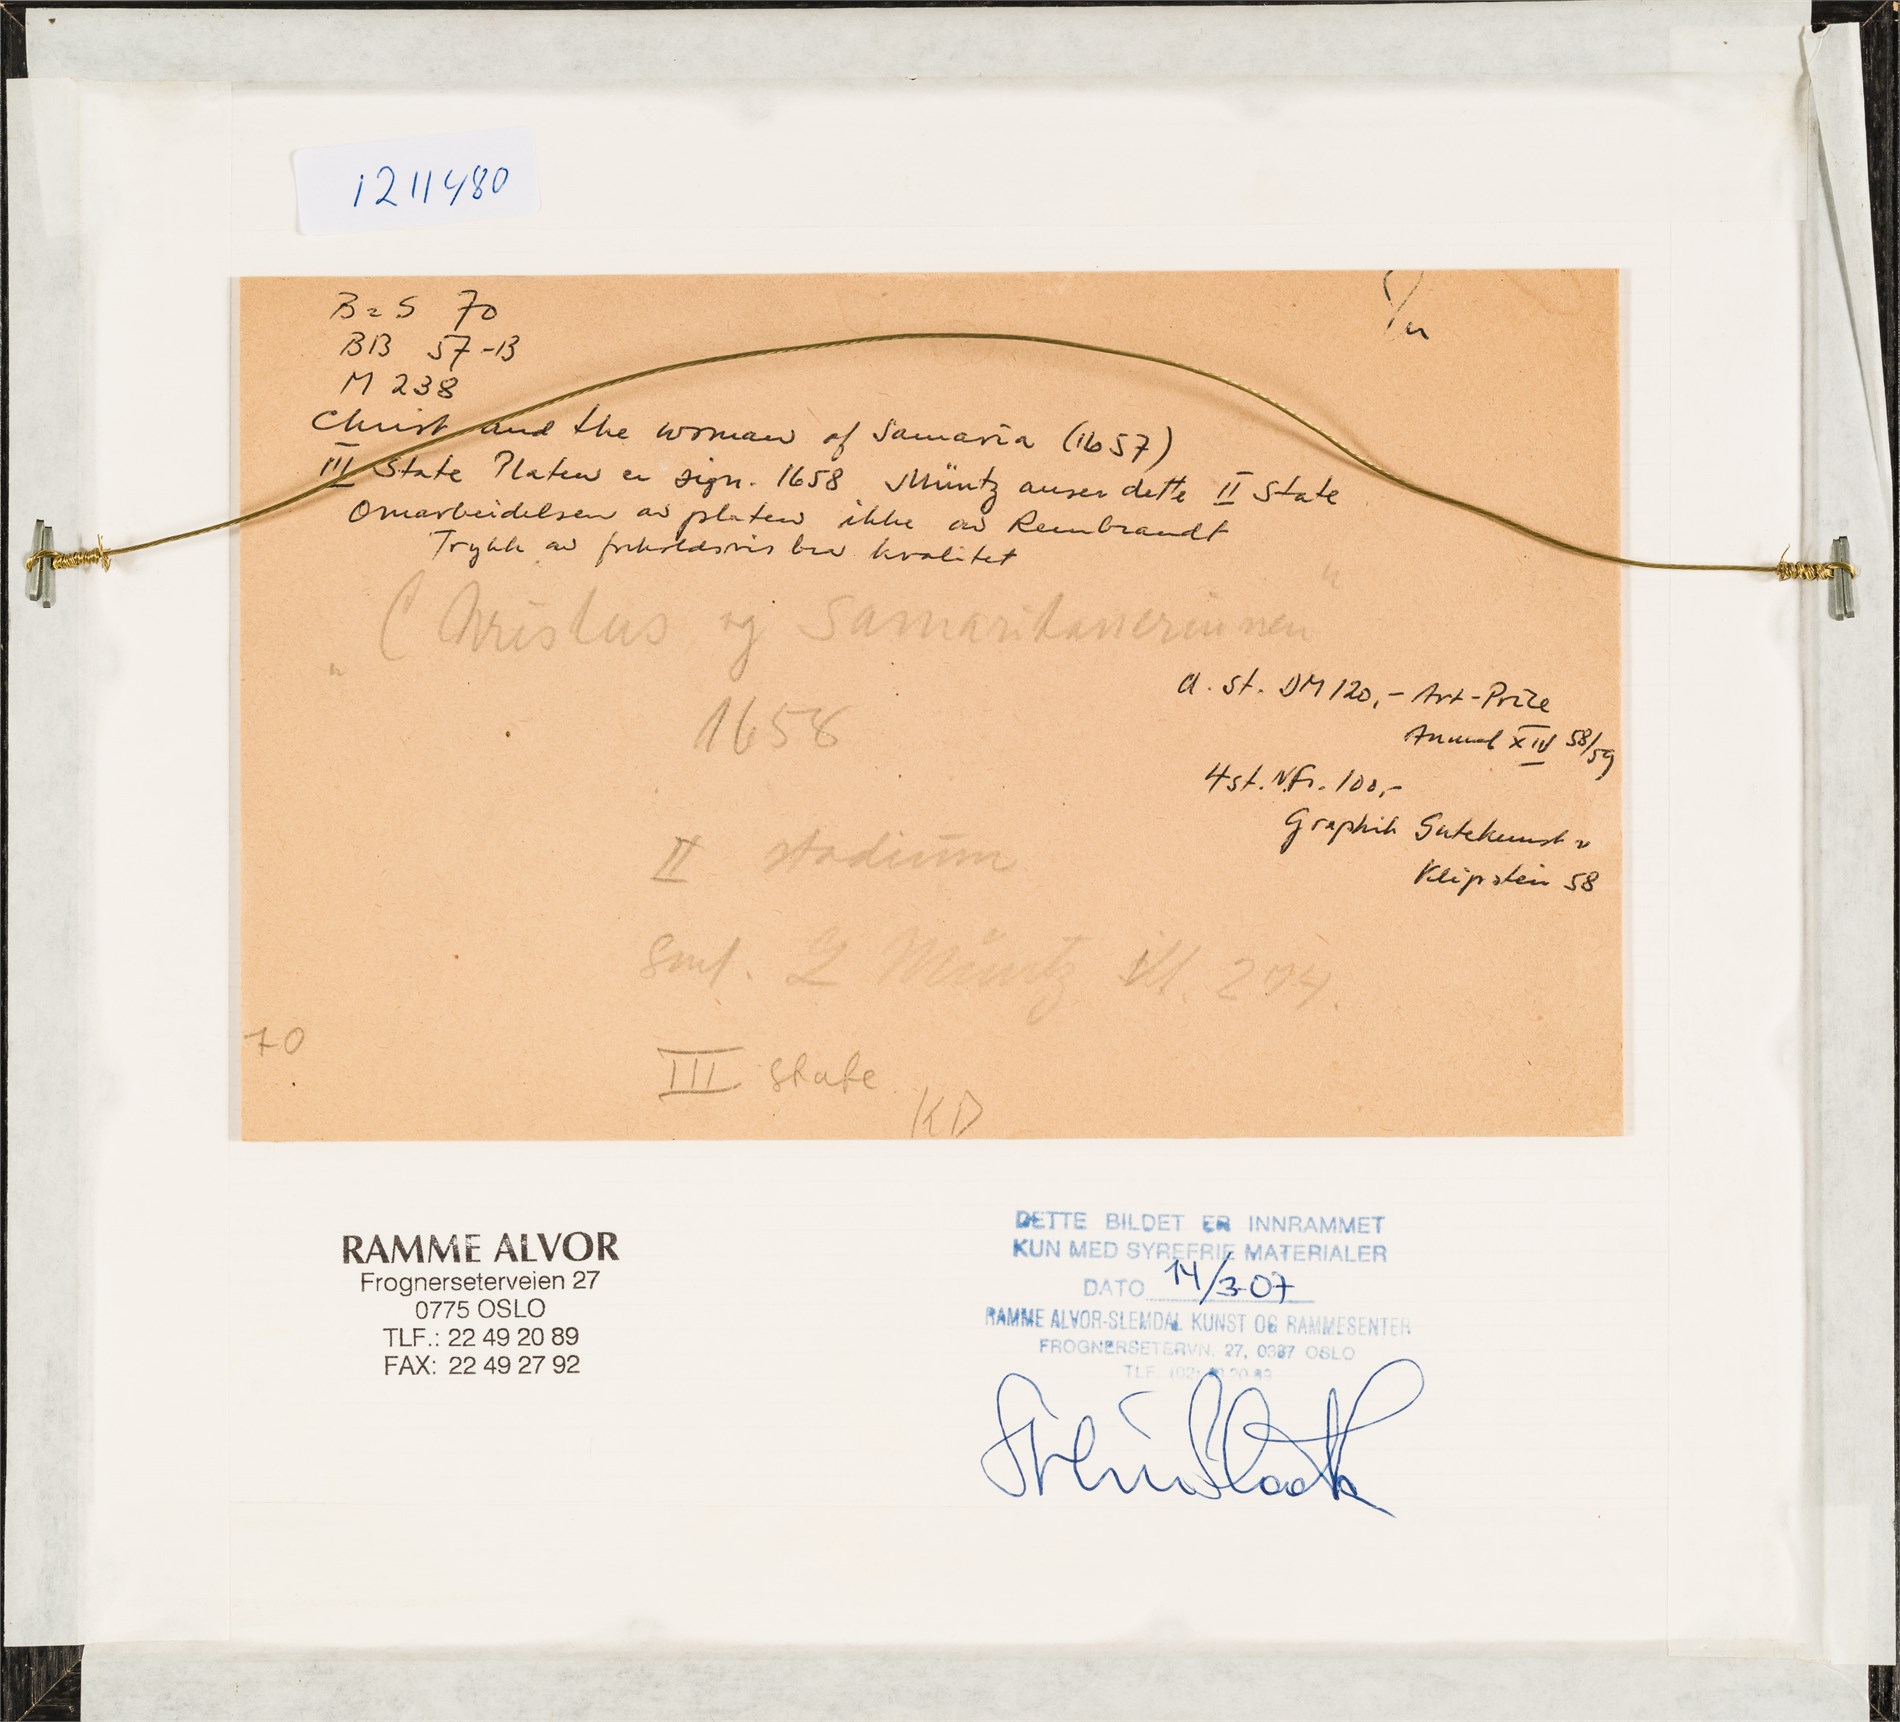 1211480
B=S 70
BB 57-B
M 238
Christ and the woman of Samaria (1657)
III State Platen er sign. 1658 Müntz anser dette II State
Omarbeidelsen av platen ikke av Rembrandt
Trykk av forholdsvis bra kvalitet
"Christus og Samaritanerinnen"
1658
a. st. DM 120,- Art-Price
Annual XIV 58/59
4 st. N.Fr. 100,-
Graphik Gutekunst
Klipstein 58
II stadium
L Müntz ill.
70
III state
KD
RAMME ALVOR
Frognerseterveien 27
0775 OSLO
TLF.: 22 49 20 89
FAX: 22 49 27 92
DETTE BILDET ER INNRAMMET
KUN MED SYREFRIE MATERIALER
DATO 14/3-07
RAMME ALVOR-SLEMDAL KUNST OG RAMMESENTER
FROGNERSETERVN. 27, 0387 OSLO
TLF. (02)